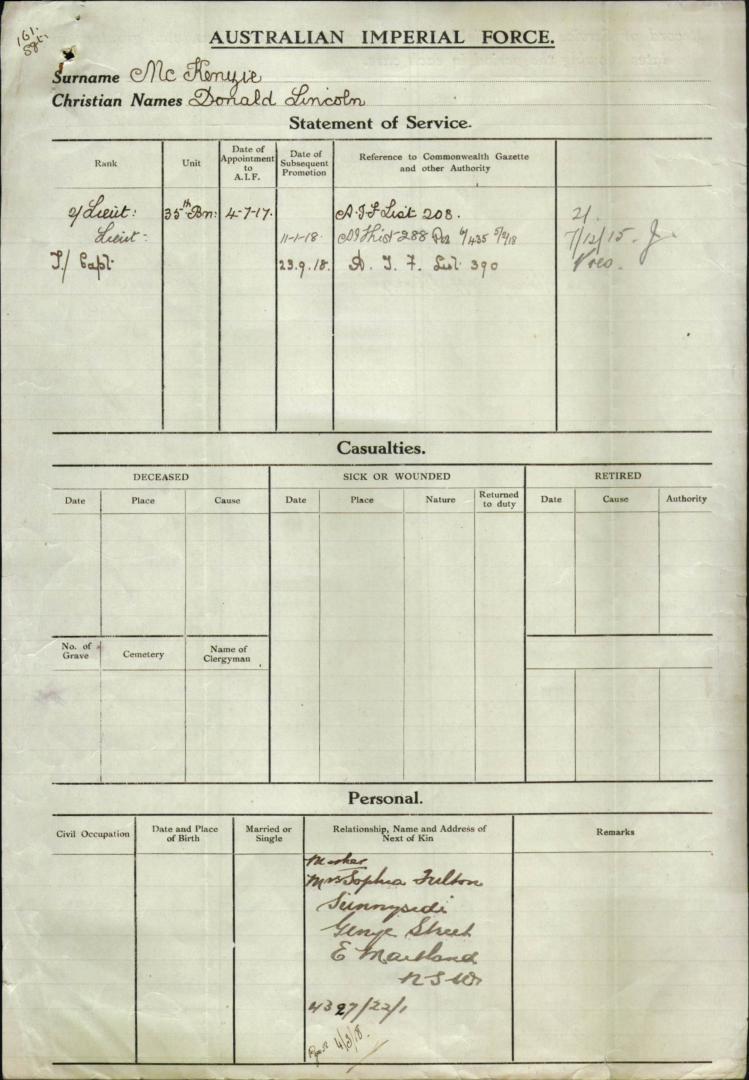 161.
Sgt.
AUSTRALIAN IMPERIAL FORCE.
Surname McKenzie
Christian Names Donald Lincoln
Statement of Service.
Rank Unit Date of Appointment to A.I.F. Date of Subsequent Promotion Reference to Commonwealth Gazette and other Authority
2/Lieut: 35th Bn: 4-7-17. A.I.F List 208. 21.
Lieut- 11-1-18. AIF List 288 7/12/15.
T/ Capt. 23.9.18. A. I. F. List 390
Casualties.
DECEASED SICK OR WOUNDED RETIRED
Date Place Cause Date Place Nature Returned to duty Date Cause Authority
No. of Grave Cemetery Name of Clergyman
Personal.
Civil Occupation Date and Place of Birth Married or Single Relationship, Name and Address of Next of Kin Remarks
Mother
Mrs Sophia Fulton
Sunnyside
George Street
E Maitland
NSW
4327/22/1
4/3/18.